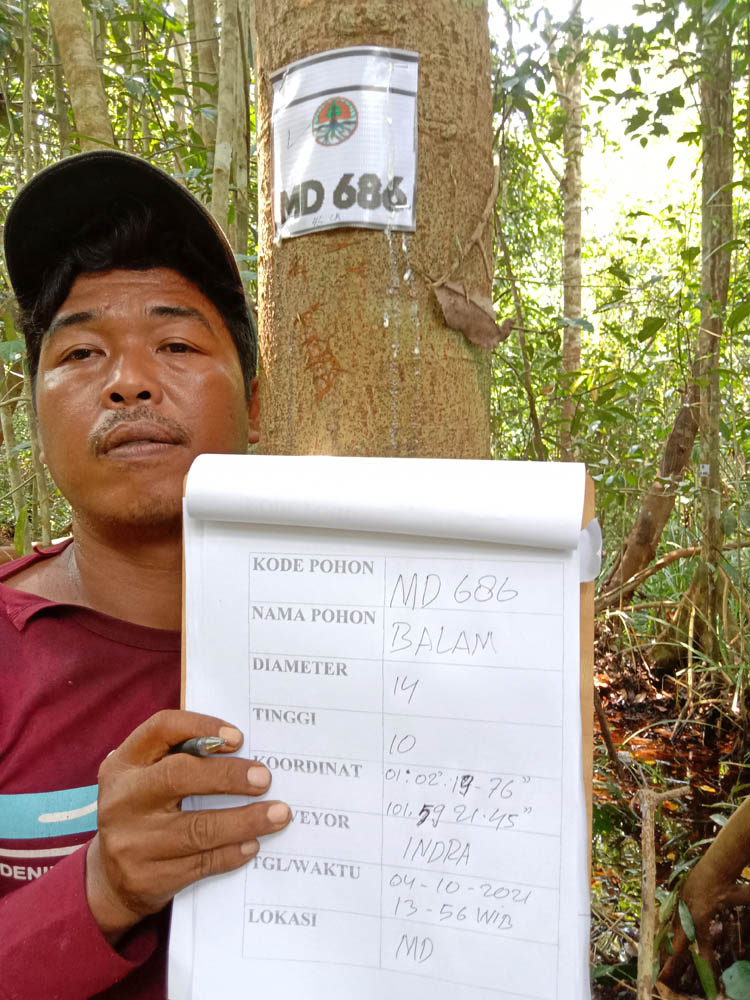 MD 686
KODE POHON MD 686
NAMA POHON BALAM
DIAMETER 14
TINGGI 10
KOORDINAT 01° 02' 19-76"
101, 59 21.45"
VEYOR INDRA
TGL/WAKTU 04-10-2021
13-56 WIB
LOKASI MD
DENI